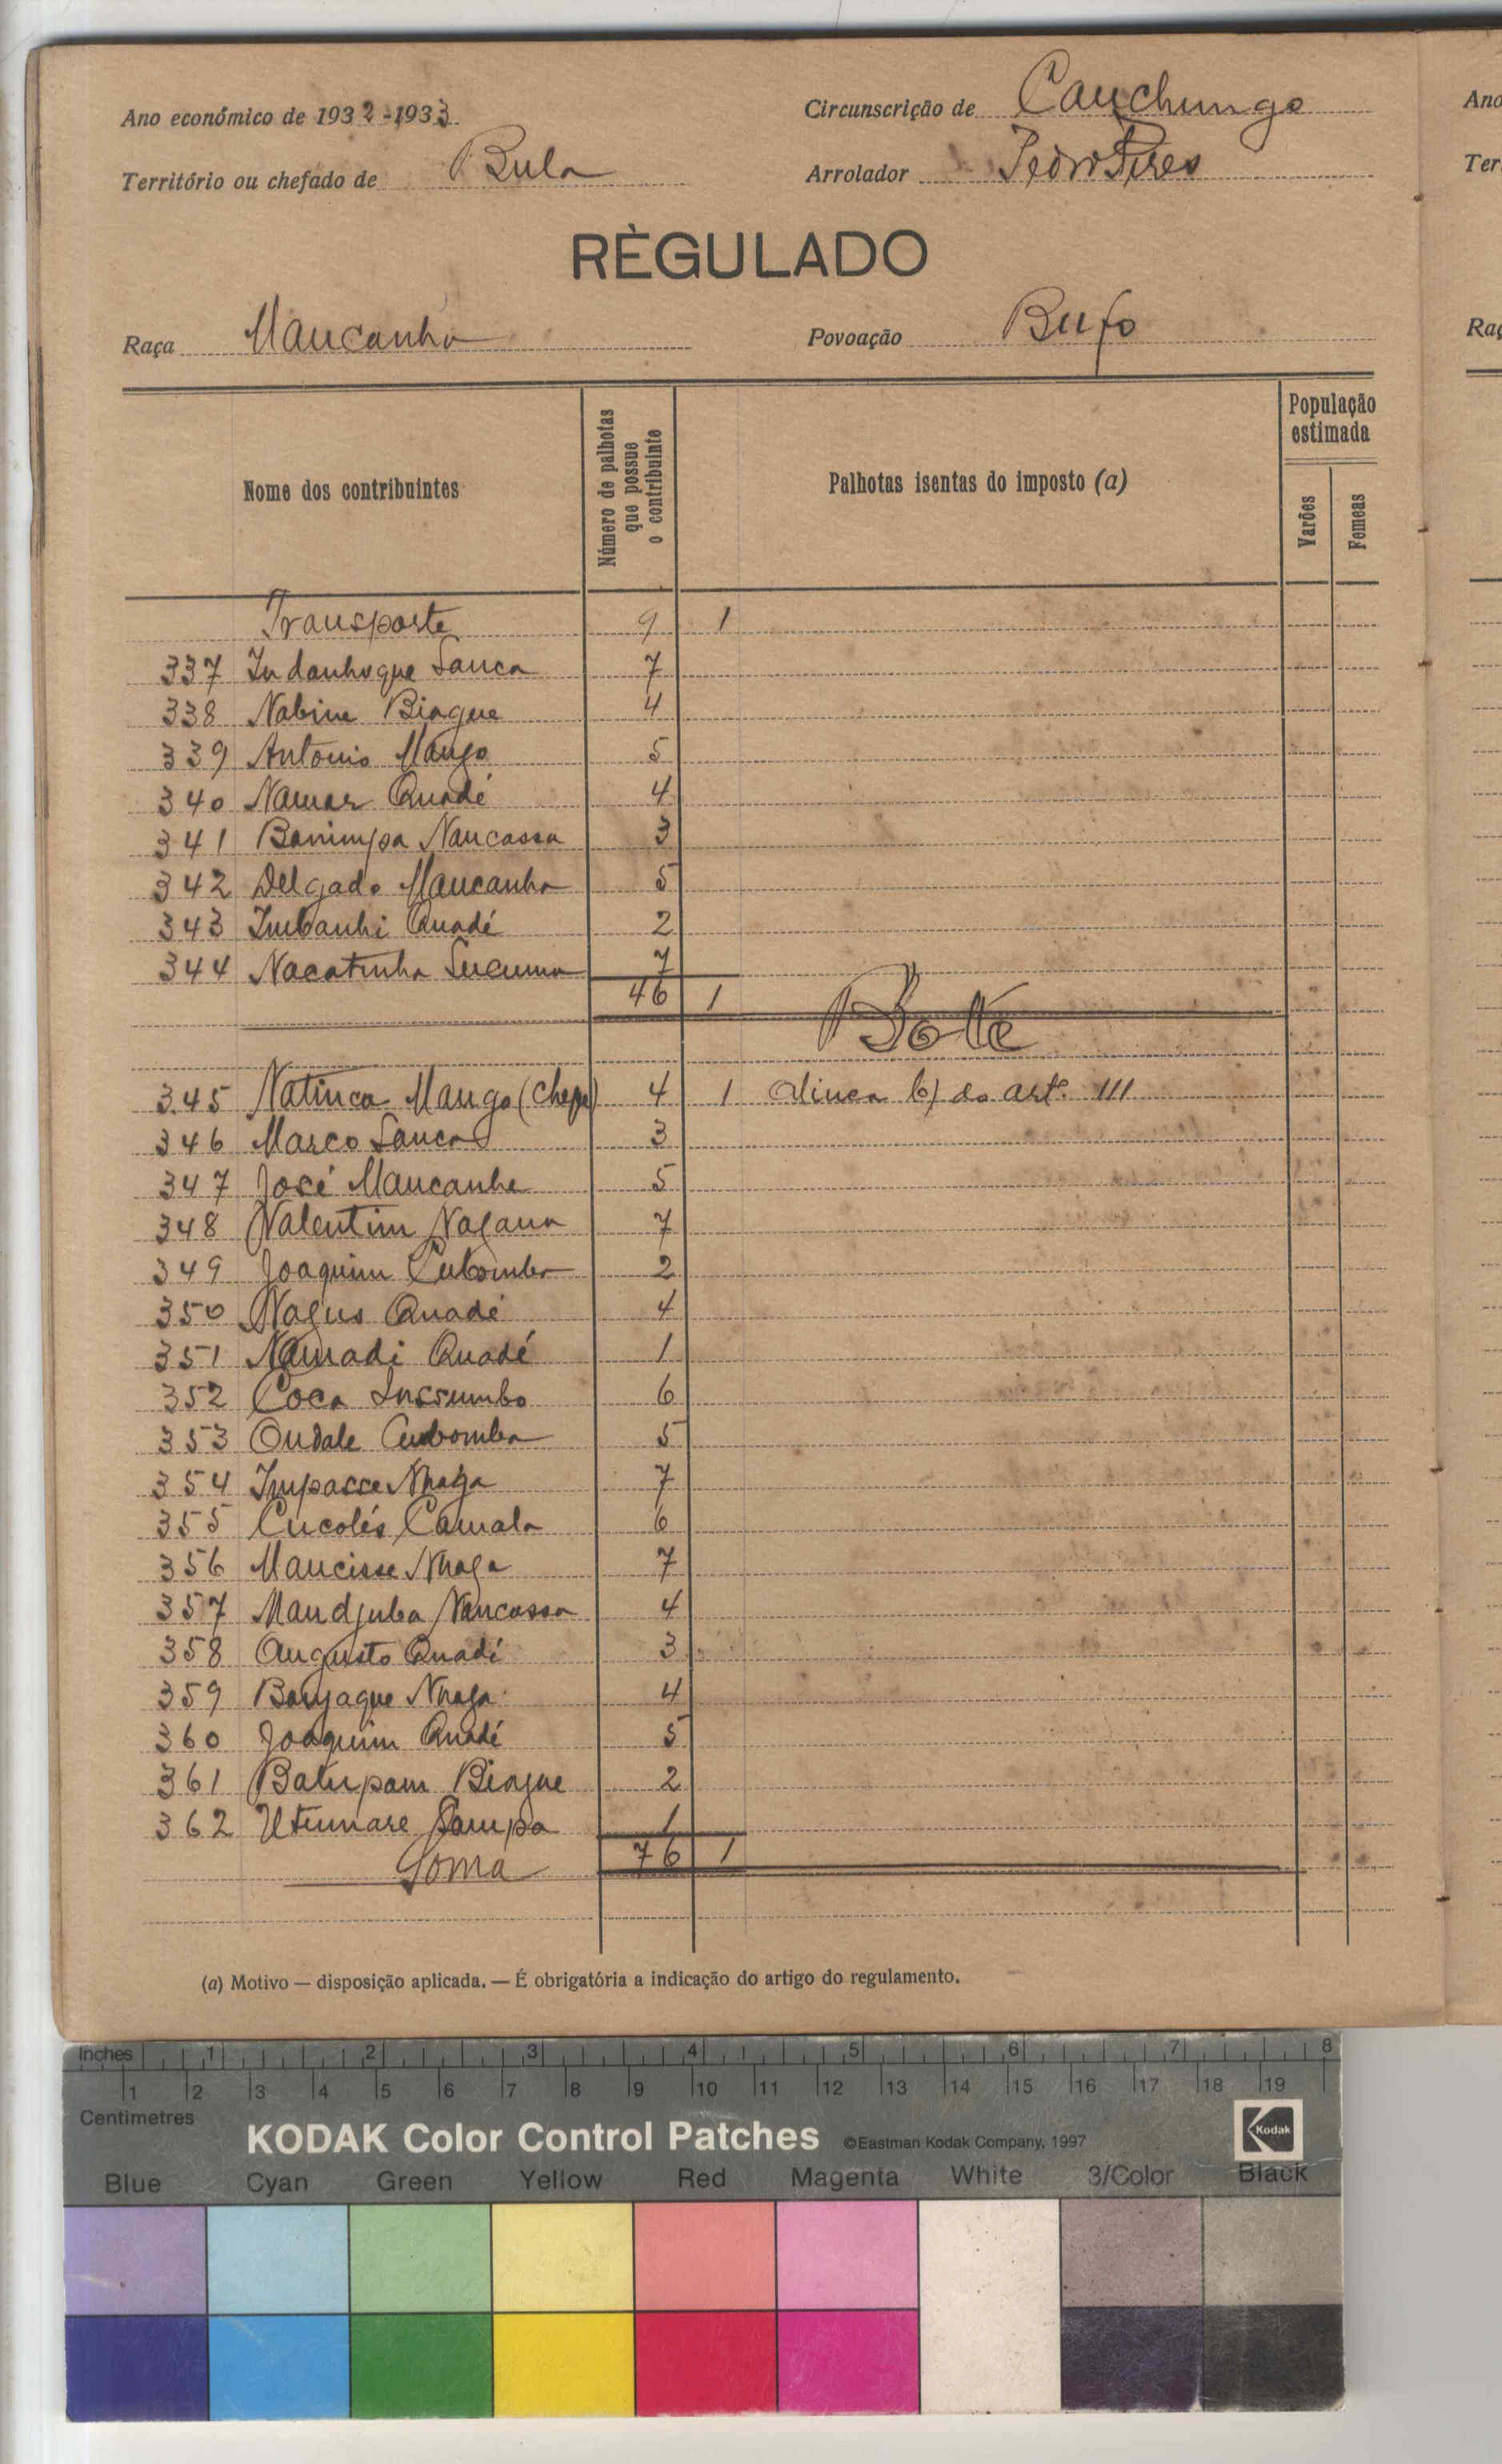 Ano económico de 1932-1933
Circunscrição de Canchungo
Território ou chefado de Bula
Arrolador Pedro Pires
RÈGULADO
Raça Mancanha
Povoação Bufo
Nome dos contribuintes
Número de palhotas que possue o contribuinte
Palhotas isentas do imposto (a)
População estimada
Varões
Femeas
Transporte 9 1
337 Indanhoque Sanca 7
338 Nabine Biague 4
339 Antonio Mango 5
340 Namar Quadé 4
341 Banimpa Nancassa 3
342 Delgado Mancanha 5
343 Imbanhi Quadé 2
344 Nacatinha Sucuma 7
46 1
Botte
345 Natinca Mango (Chefe) 4 1 alinea b) do artº. 111
346 Marco Sanca 3
347 José Mancanha 5
348 Valentim Nagana 7
349 Joaquim Cubomba 2
350 Nagus Quadé 4
351 Namadi Quadé 1
352 Coca Inssumbo 6
353 Ondale Cubomba 5
354 Impasse Nhaga 7
355 Cucolés Camala 6
356 Mancisse Nhaga 7
357 Mandjuba Nancassa 4
358 Augusto Quadé 3
359 Banjaque Nhaga 4
360 Joaquim Quadé 5
361 Batupam Biague 2
362 Utumare Sampa 1
Soma 76 1
(a) Motivo — disposição aplicada. — É obrigatória a indicação do artigo do regulamento.
Ano
Ter
Raç
Inches 1 2 3 4 5 6 7 8
1 2 3 4 5 6 7 8 9 10 11 12 13 14 15 16 17 18 19
Centimetres
KODAK Color Control Patches ©Eastman Kodak Company, 1997
Kodak
Blue Cyan Green Yellow Red Magenta White 3/Color Black